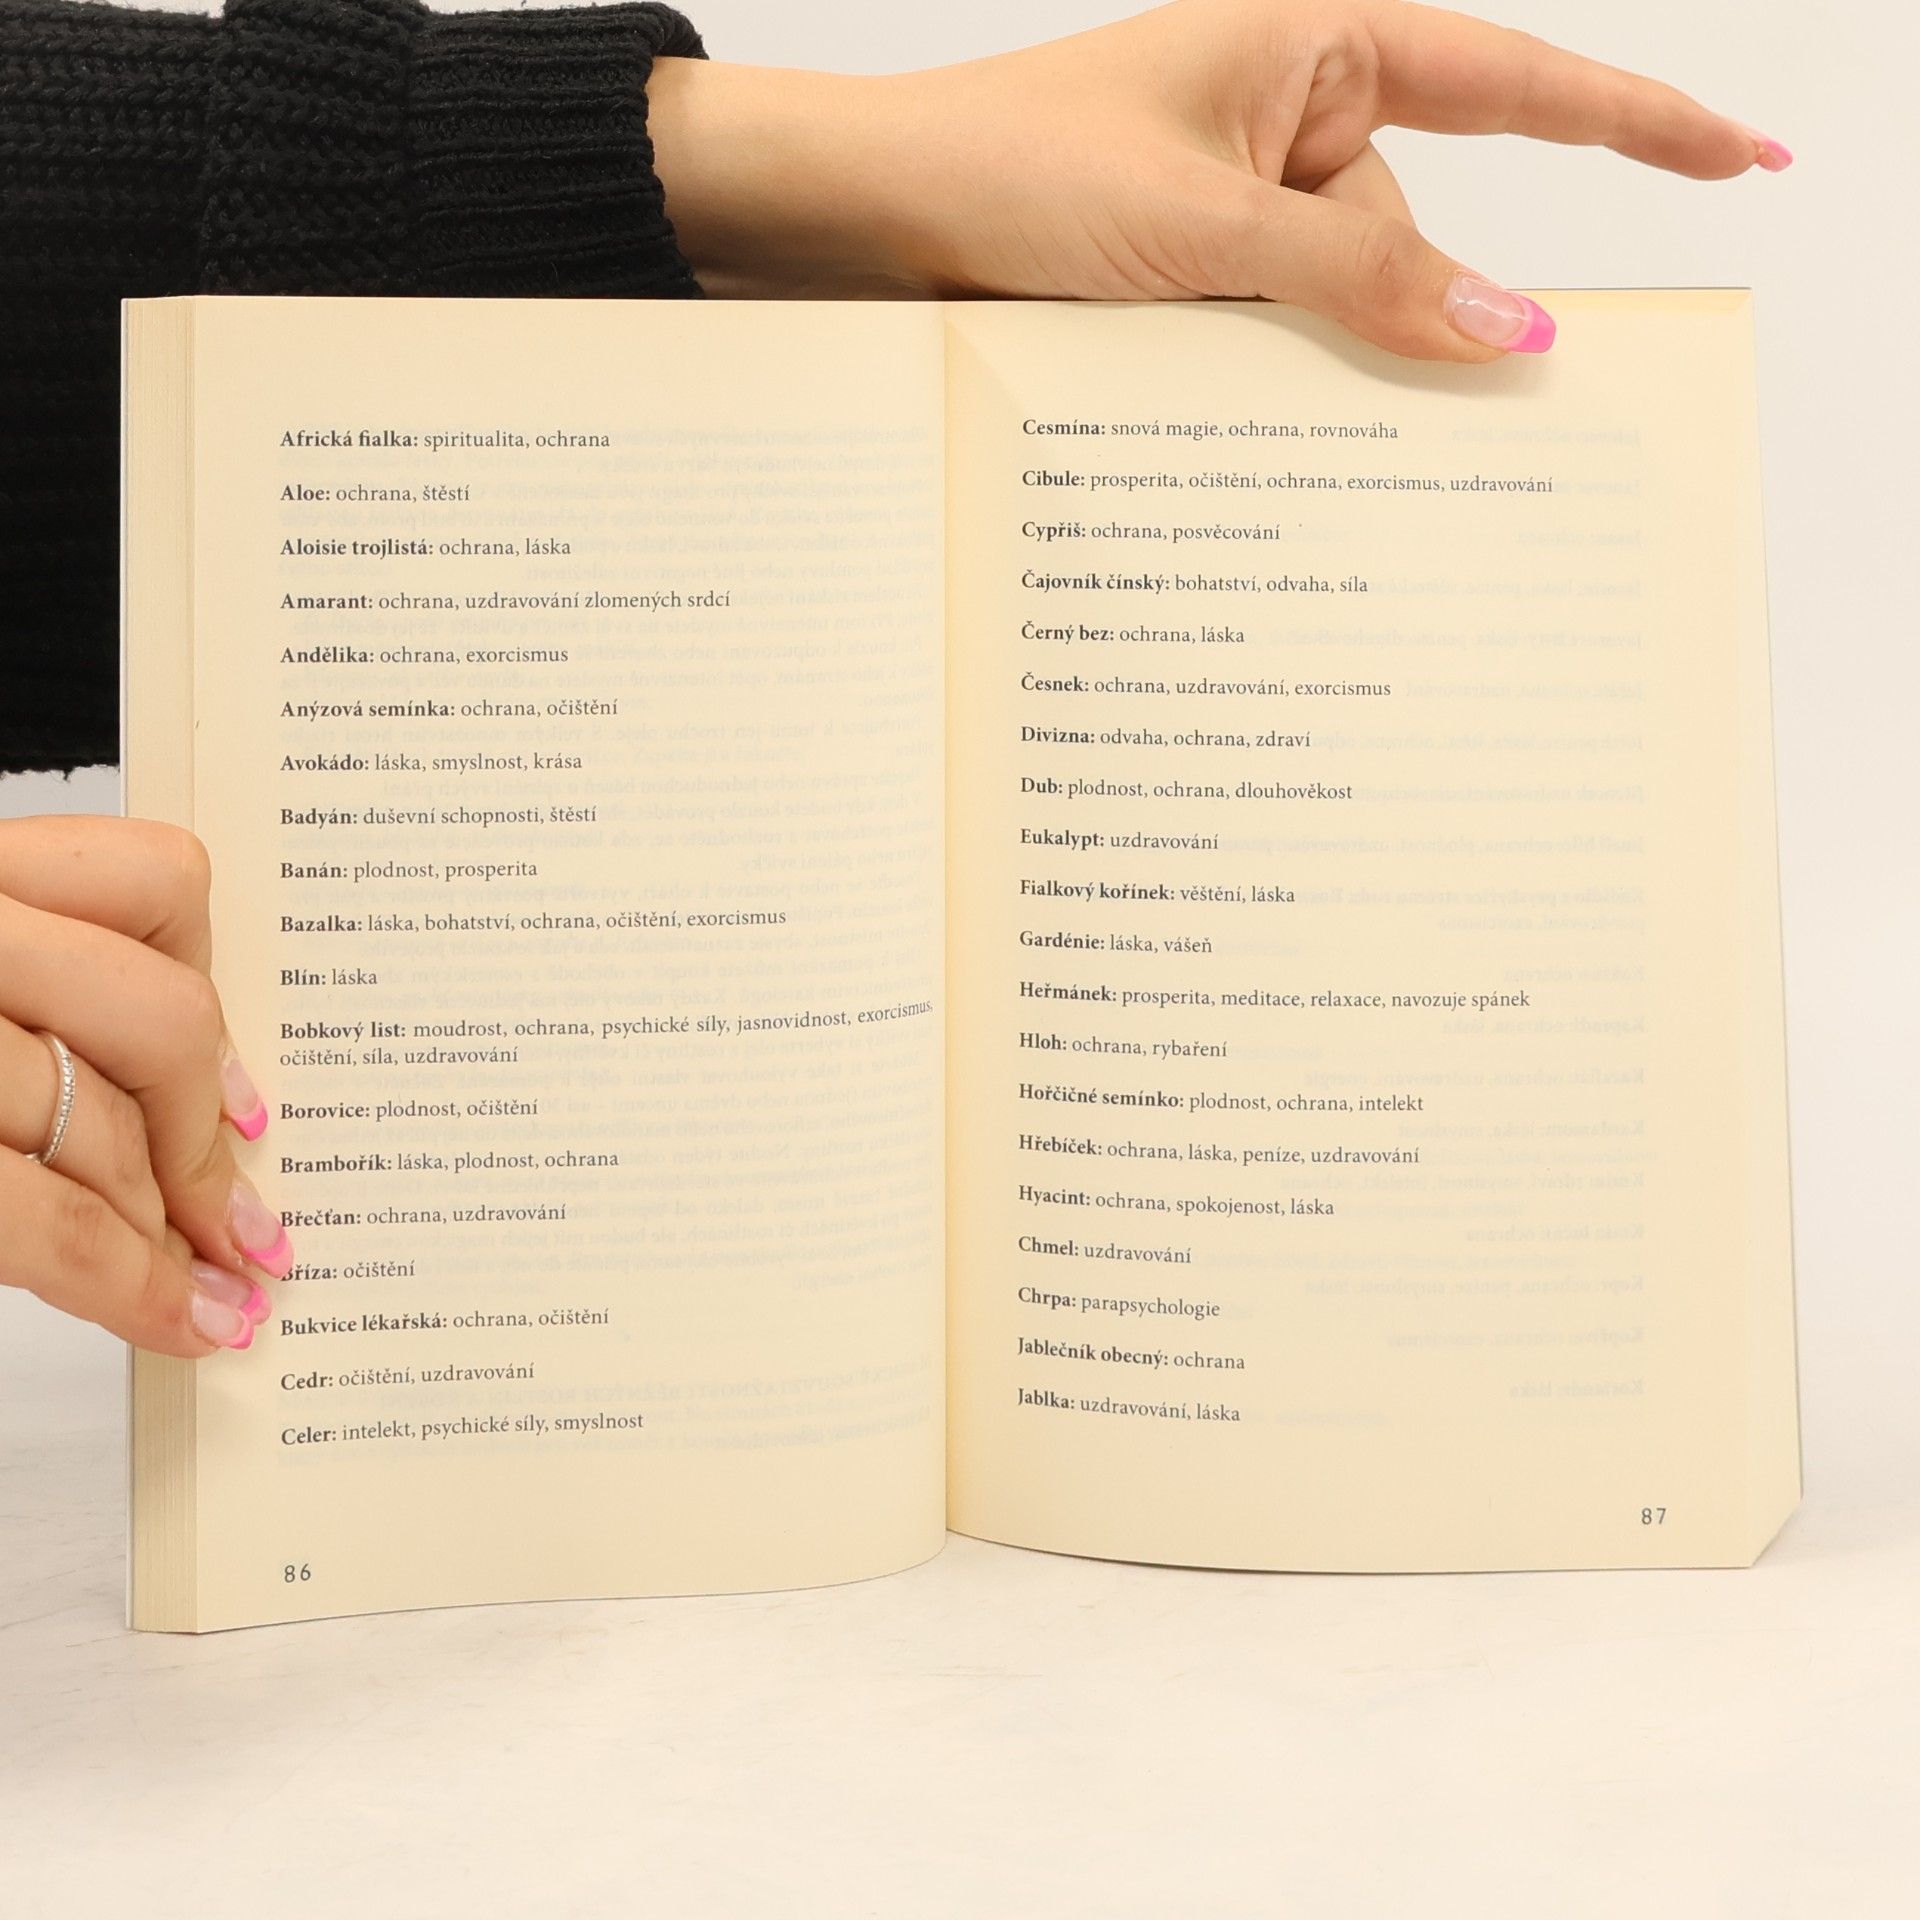 Africká fialka: spiritualita, ochrana
Aloe: ochrana, štěstí
Aloisie trojlistá: ochrana, láska
Amarant: ochrana, uzdravování zlomených srdcí
Andělika: ochrana, exorcismus
Anýzová semínka: ochrana, očištění
Avokádo: láska, smyslnost, krása
Badyán: duševní schopnosti, štěstí
Banán: plodnost, prosperita
Bazalka: láska, bohatství, ochrana, očištění, exorcismus
Blín: láska
Bobkový list: moudrost, ochrana, psychické síly, jasnovidnost, exorcismus,
očištění, síla, uzdravování
Borovice: plodnost, očištění
Brambořík: láska, plodnost, ochrana
Břečťan: ochrana, uzdravování
Bříza: očištění
Bukvice lékařská: ochrana, očištění
Cedr: očištění, uzdravování
Celer: intelekt, psychické síly, smyslnost
86
Cesmína: snová magie, ochrana, rovnováha
Cibule: prosperita, očištění, ochrana, exorcismus, uzdravování
Cypřiš: ochrana, posvěcování
Čajovník čínský: bohatství, odvaha, síla
Černý bez: ochrana, láska
Česnek: ochrana, uzdravování, exorcismus
Divizna: odvaha, ochrana, zdraví
Dub: plodnost, ochrana, dlouhověkost
Eukalypt: uzdravování
Fialkový kořínek: věštění, láska
Gardénie: láska, vášeň
Heřmánek: prosperita, meditace, relaxace, navozuje spánek
Hloh: ochrana, rybaření
Hořčičné semínko: plodnost, ochrana, intelekt
Hřebíček: ochrana, láska, peníze, uzdravování
Hyacint: ochrana, spokojenost, láska
Chmel: uzdravování
Chrpa: parapsychologie
Jablečník obecný: ochrana
Jablka: uzdravování, láska
87